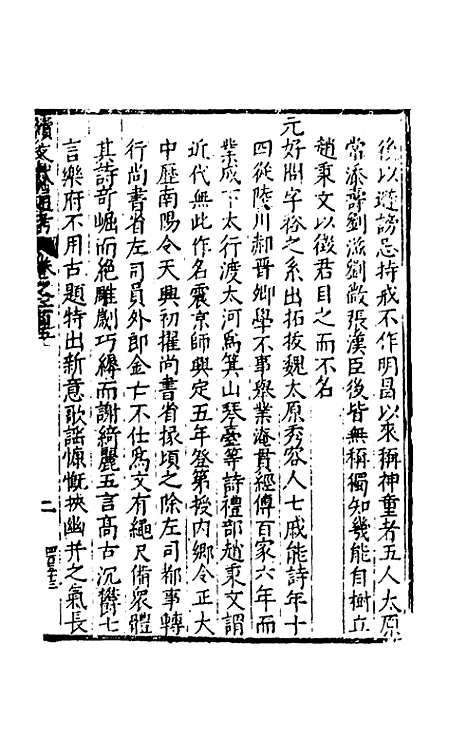 後以避謗忌持戒不作明昌以來稱神童者五人太原
常添壽劉滋劉微張漢臣後皆無稱獨知幾能自樹立
趙秉文以徵君目之而不名
元好問字裕之系出拓拔魏太原秀容人七歲能詩年十
四從陵川郝晉卿學不事舉業淹貫經傳百家六年而
業成下太行渡大河爲箕山琴臺等詩禮部趙秉文謂
近代無此作名震京師興定五年登第授内鄉令正大
中歷南陽令天興初擢尚書省掾頃之除左司都事轉
行尚書省左司員外郎金亡不仕爲文有繩尺備衆體
其詩奇崛而絶雕劌巧縟而謝綺麗五言高古沉鬱七
言樂府不用古題特出新意歌謠慷慨挾幽并之氣長
續文獻通考
卷之
二